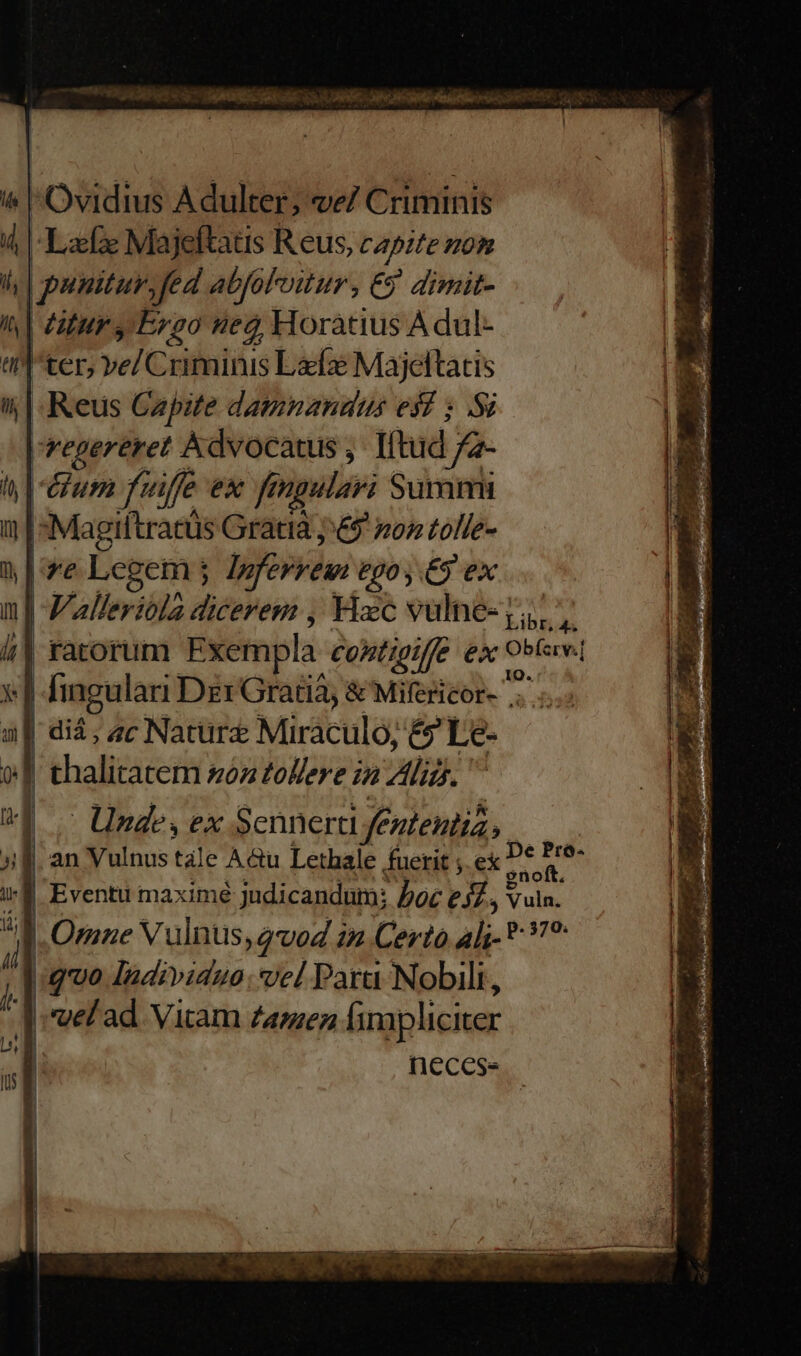 Ovidius Adulter, vel Criminis
Læſæ Majeſtatis Reus, capite non
punitur, ſed abſolvitur, & dimit-
titur, Ergo neq, Horatius Adul-
ter, vel Criminis Læſæ Majeſtatis
Reus Capite damnandus eſt ; Si
regereret Advocatus , Iſtud fa-
ctum fuiſſe ex ſingulari Summi
Magiſtratûs Gratiâ , & non tolle-
re Legem ; Inferrem ego, & ex
Valleriolâ dicerem , Hæc vulne-
Libr. 4.
ratorum Exempla contigiſſe ex
Obſerv.
ſingulari Dei Gratiâ, & Miſericor-
10.
diâ, ac Naturæ Miraculo, & Le-
thalitatem non tollere in Aliis.
Unde, ex Sennerti ſententiâ,
an Vulnus tale Actu Lethale fuerit ; ex
De Pro-
gnoſt.
Eventu maximè judicandum; hoc eſt,
Vuln.
Omne Vulnus, quod in Certo ali-
p. 370.
quo Individuo vel Parti Nobili,
vel ad Vitam tamen ſimpliciter
neces-